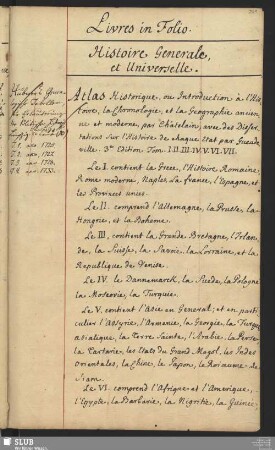 Livres in Folio.
Histoire Generale,
et Universelle.
Atlas Historique, ou Introduction à l'His-
toire, la Chronologie, et la Geographie ancien-
ne et moderne, par Châtelain, avec des Disser-
tations sur l'Histoire de chaque Etat par Gueude-
ville. 3me Edition Tom I. II. III. IV. V. VI. VII.
Le I. contient la Grece, l'Histoire Romaine
Rome moderne, Naples, la France, l'Espagne, et
les Provinces unies.
Le II. comprend l'Allemagne, la Prusse, la
Hongrie, et la Boheme.
Le III. contient la Grande Bretagne, l'Irlan-
de, la Suisse, la Savoie, la Lorraine, et la
Republique de Venise.
Le IV. le Dannemarck, la Suede, la Pologne
la Moscovie, la Turquie.
Le V. contient l'Asie en General; et en parti-
culier l'Assyrie, l'Armenie, la Georgie, la Turquie
asiatique, la Terre Sainte, l'Arabie, la Perse
la Tartarie, les Etats du Grand Mogol, les Indes
Orientales, la Chine, le Japon, le Roiaume de
Siam.
Le VI. comprend l'Afrique et l'Amerique,
l'Egypte, la Barbarie, la Nigritie, la Guinée
Hübner's
Tabellen
T. 1.
T. 2.
T. 3.
SLUB